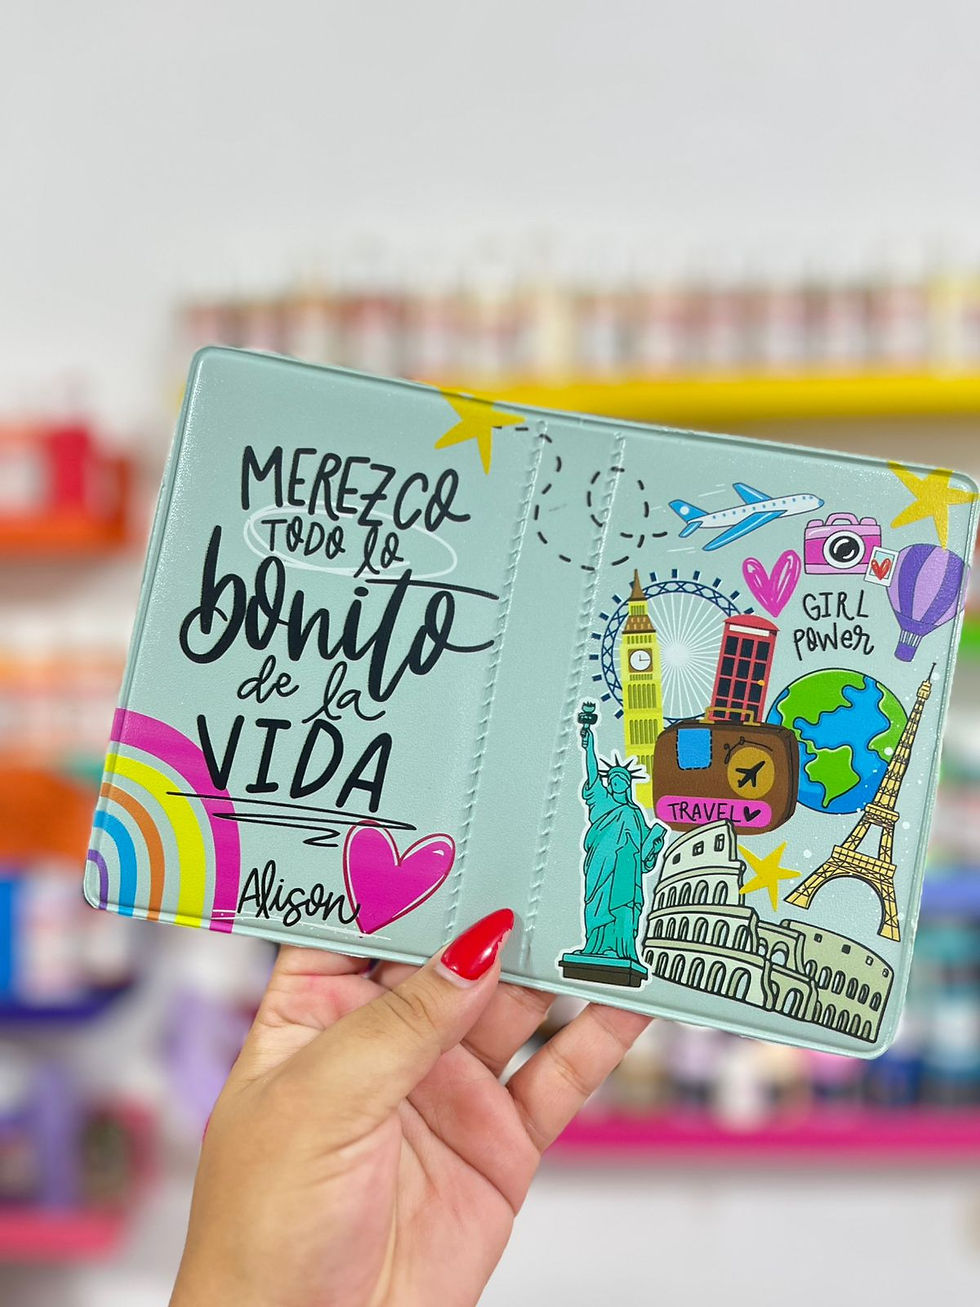 MEREZCO
TODO lo
bonito
de la
VIDA
Alison
GIRL
POWER
TRAVEL